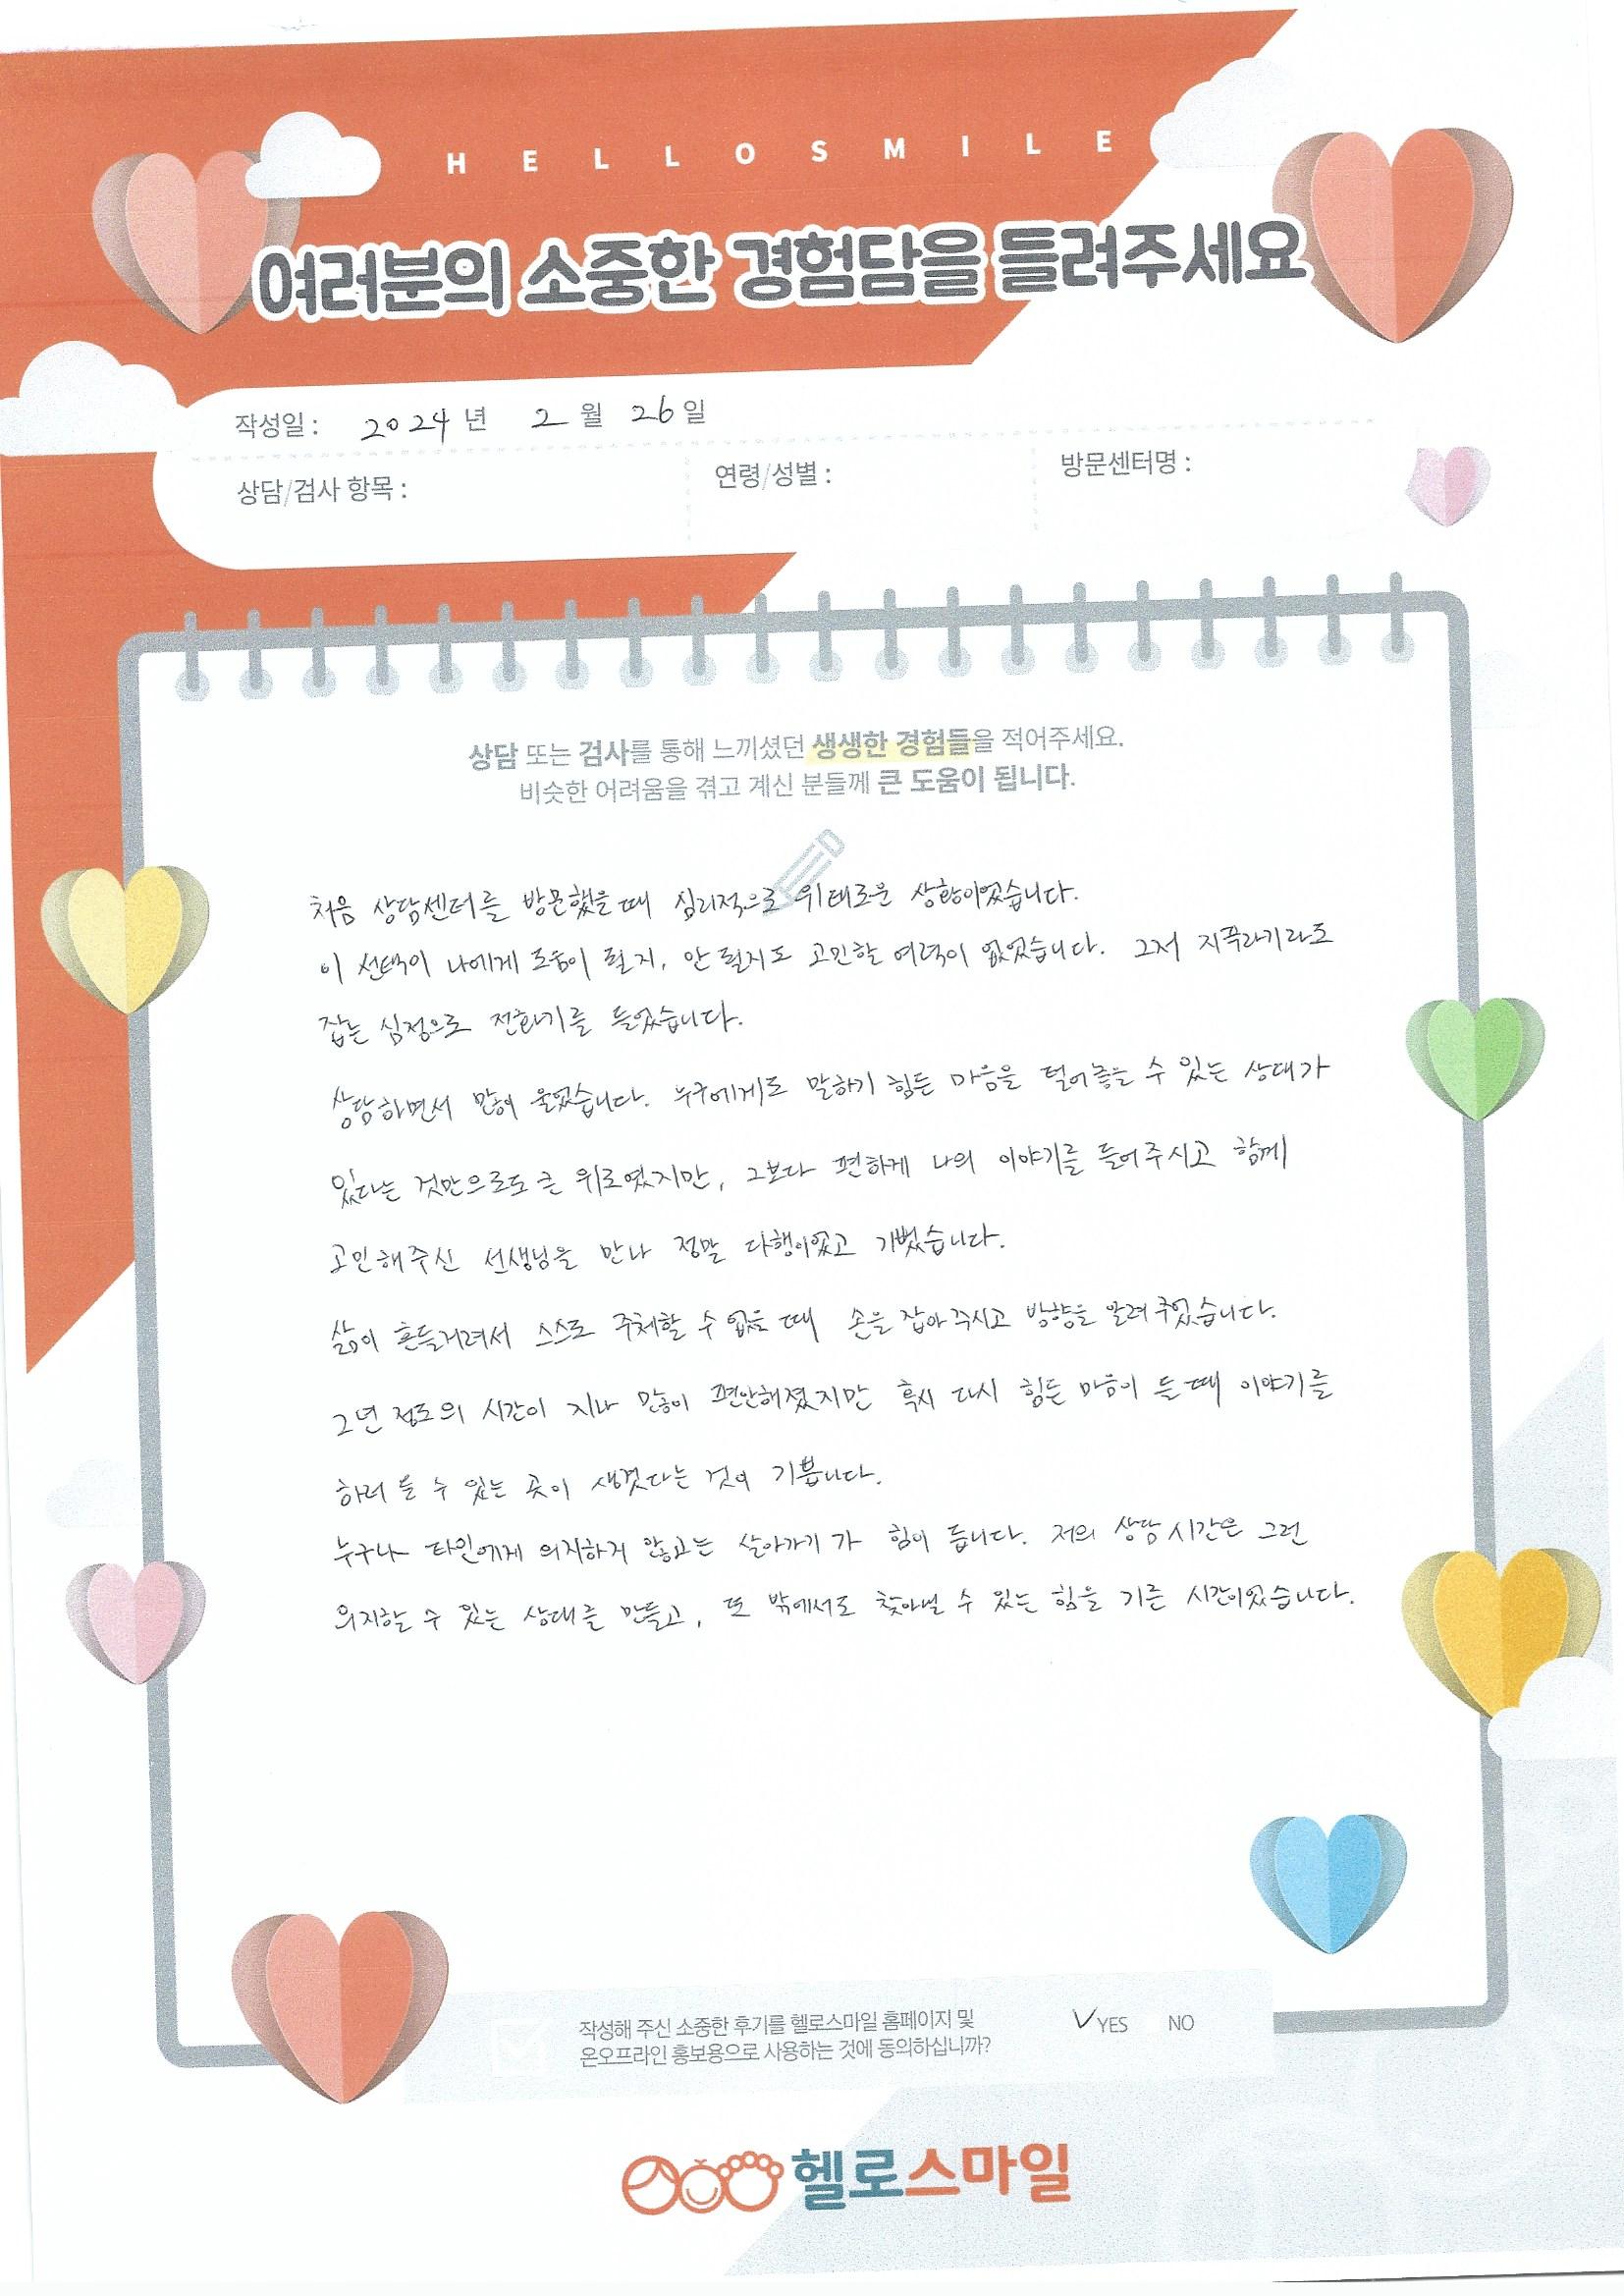 HELLOSMILE
여러분의 소중한 경험담을 들려주세요
작성일 : 2024 년 2 월 26 일
상담/검사 항목 : 연령/성별 : 방문센터명 :
상담 또는 검사를 통해 느끼셨던 생생한 경험들을 적어주세요.
비슷한 어려움을 겪고 계신 분들께 큰 도움이 됩니다.
처음 상담센터를 방문했을 때 심리적으로 위태로운 상황이었습니다.
이 선택이 나에게 도움이 될지, 안 될지도 고민할 여력이 없었습니다. 그저 지푸라기라도
잡는 심정으로 전화기를 들었습니다.
상담하면서 많이 울었습니다. 누구에게도 말하기 힘든 마음을 털어놓을 수 있는 상대가
있다는 것만으로도 큰 위로였지만, 그보다 편하게 나의 이야기를 들어주시고 함께
고민해주신 선생님을 만나 정말 다행이었고 기뻤습니다.
삶이 흔들거려서 스스로 주체할 수 없을 때 손을 잡아 주시고 방향을 알려 주었습니다.
2년 정도의 시간이 지나 많이 편안해졌지만 혹시 다시 힘든 마음이 들 때 이야기를
하러 올 수 있는 곳이 생겼다는 것이 기쁩니다.
누구나 타인에게 의지하지 않고는 살아가기가 힘이 듭니다. 저의 상담 시간은 그런
의지할 수 있는 상대를 만들고, 또 밖에서도 찾아낼 수 있는 힘을 기른 시간이었습니다.
작성해 주신 소중한 후기를 헬로스마일 홈페이지 및
온오프라인 홍보용으로 사용하는 것에 동의하십니까?
✓YES NO
헬로스마일